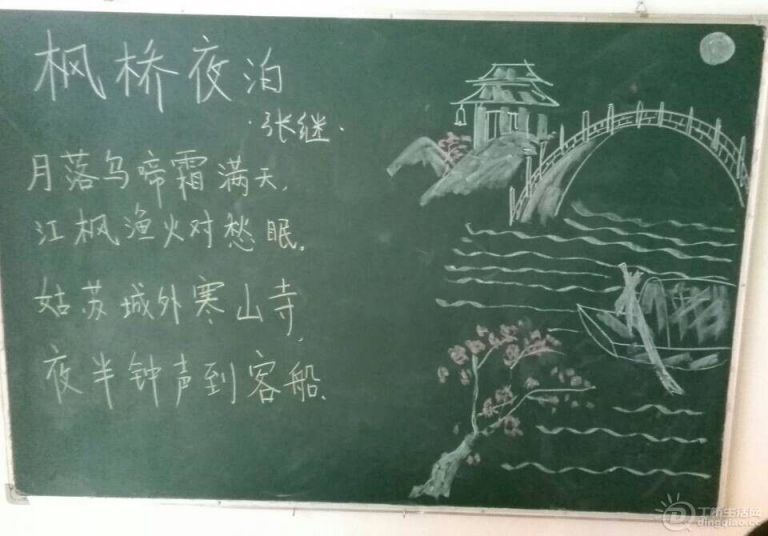 枫桥夜泊
·张继·
月落乌啼霜满天,
江枫渔火对愁眠.
姑苏城外寒山寺,
夜半钟声到客船.
dingqiao.cc